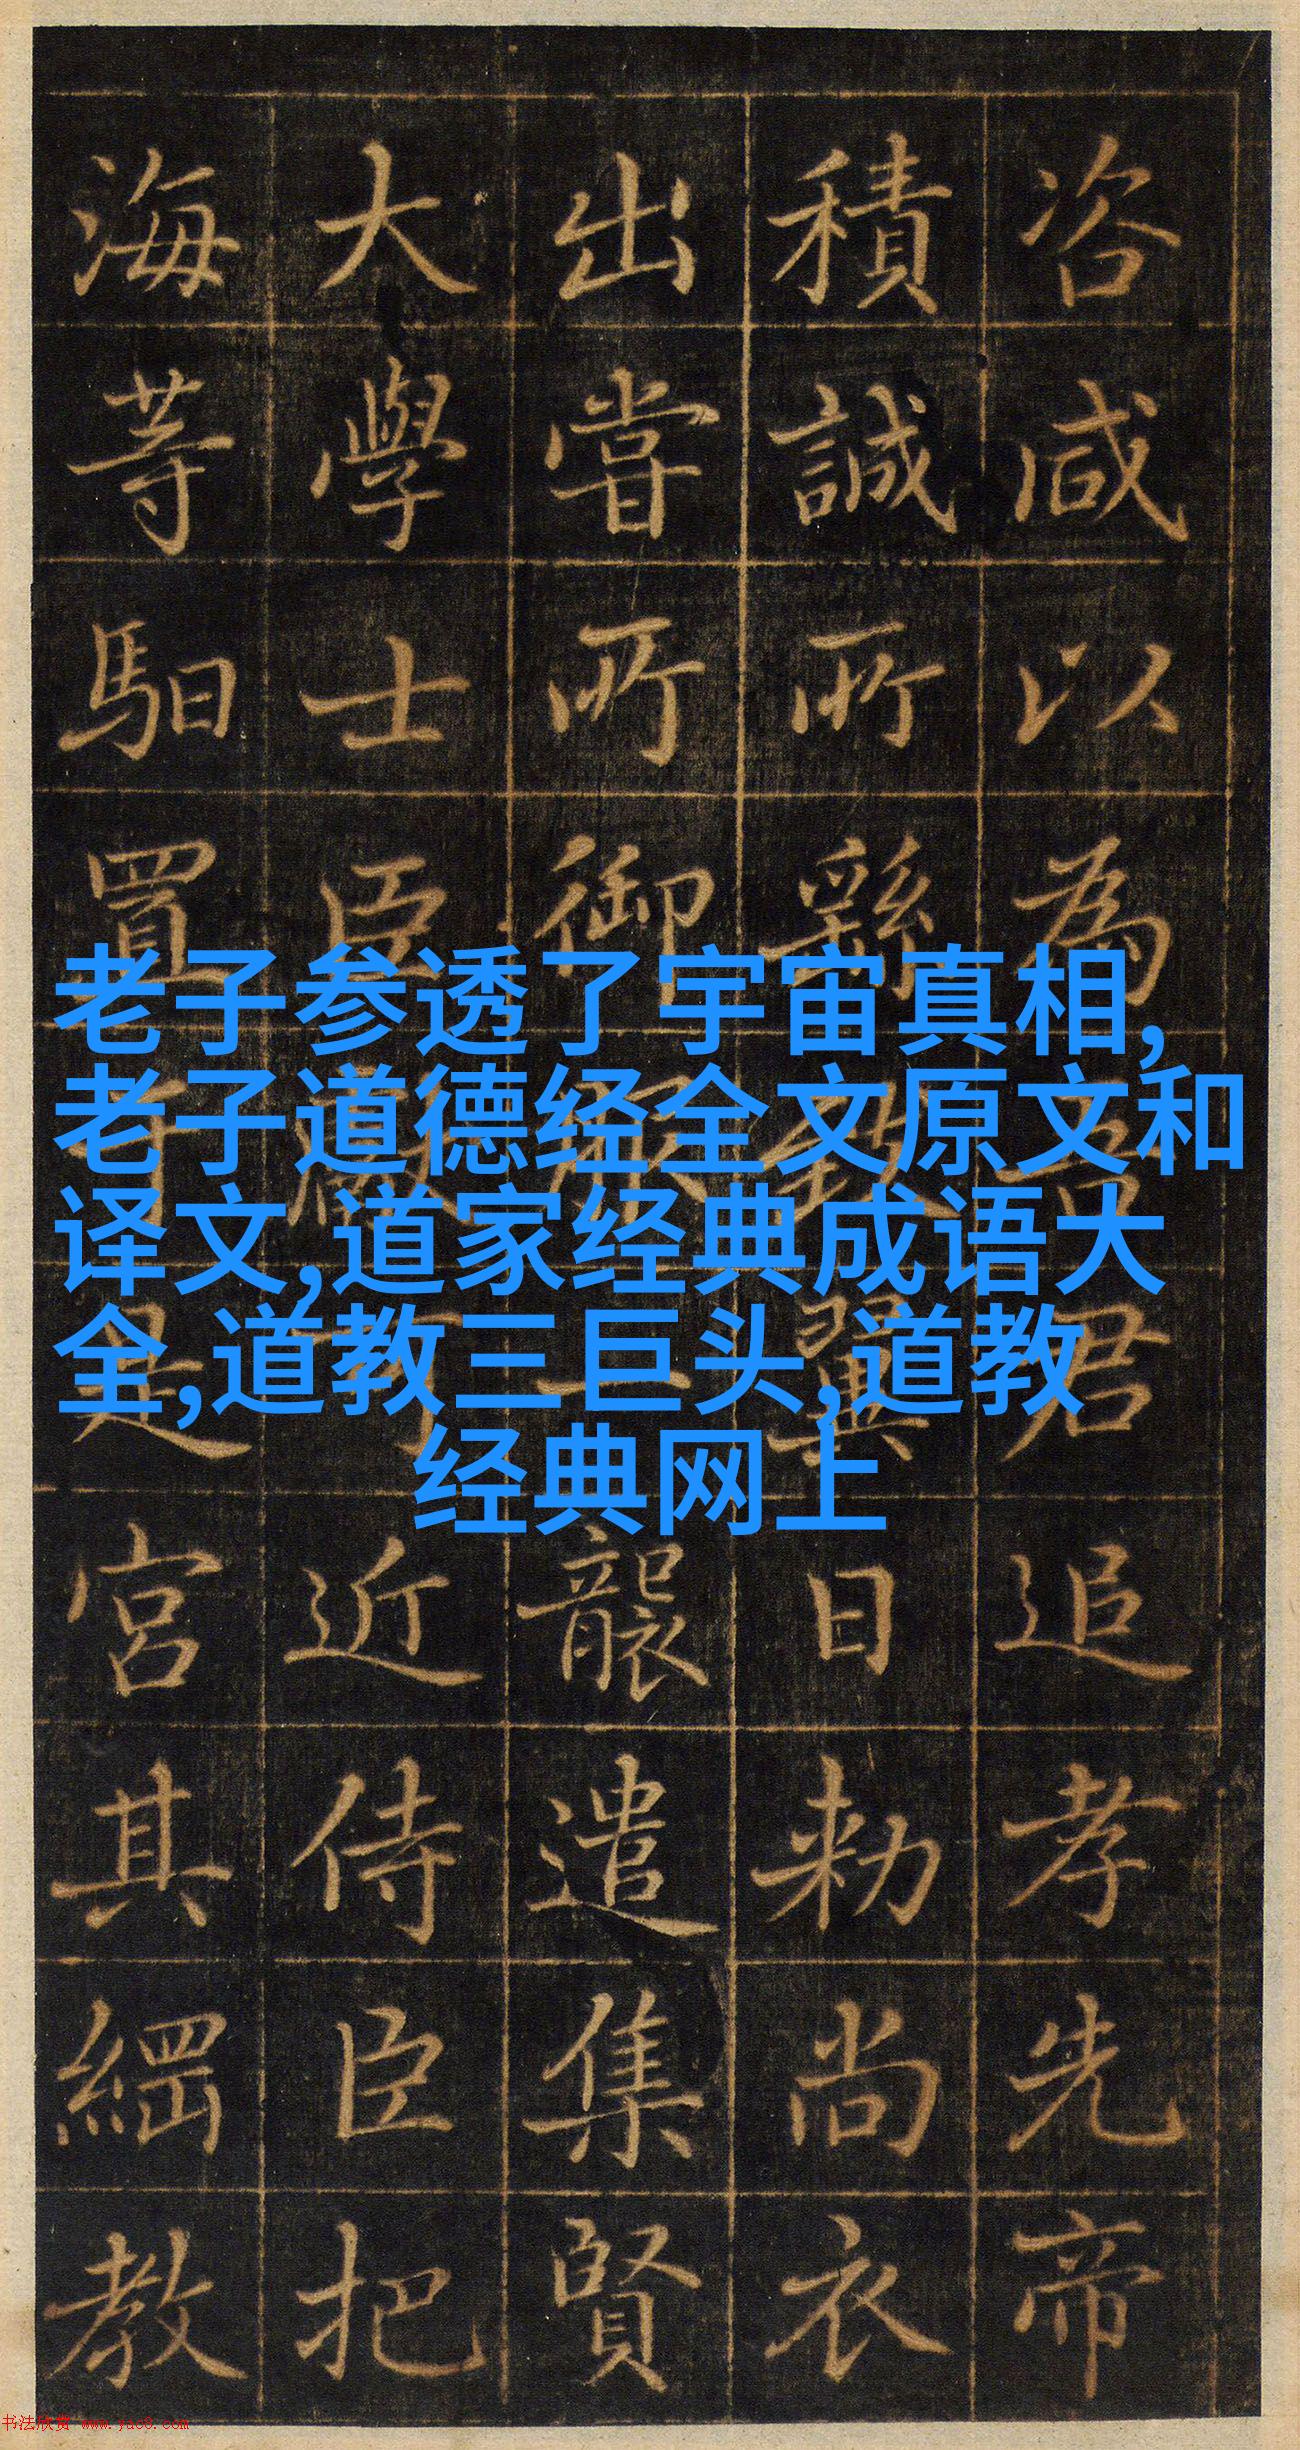 咨咸以為君追孝先帝
積誠所繇翼日勅尚衣
出嘗所御一襲遣集賢
大學士臣近侍臣把
海等馹置是宮其綱教
老子参透了宇宙真相,
老子道德经全文原文和
译文,道家经典成语大
全,道教三巨头,道教
经典网上
书法欣赏 www.yac8.com